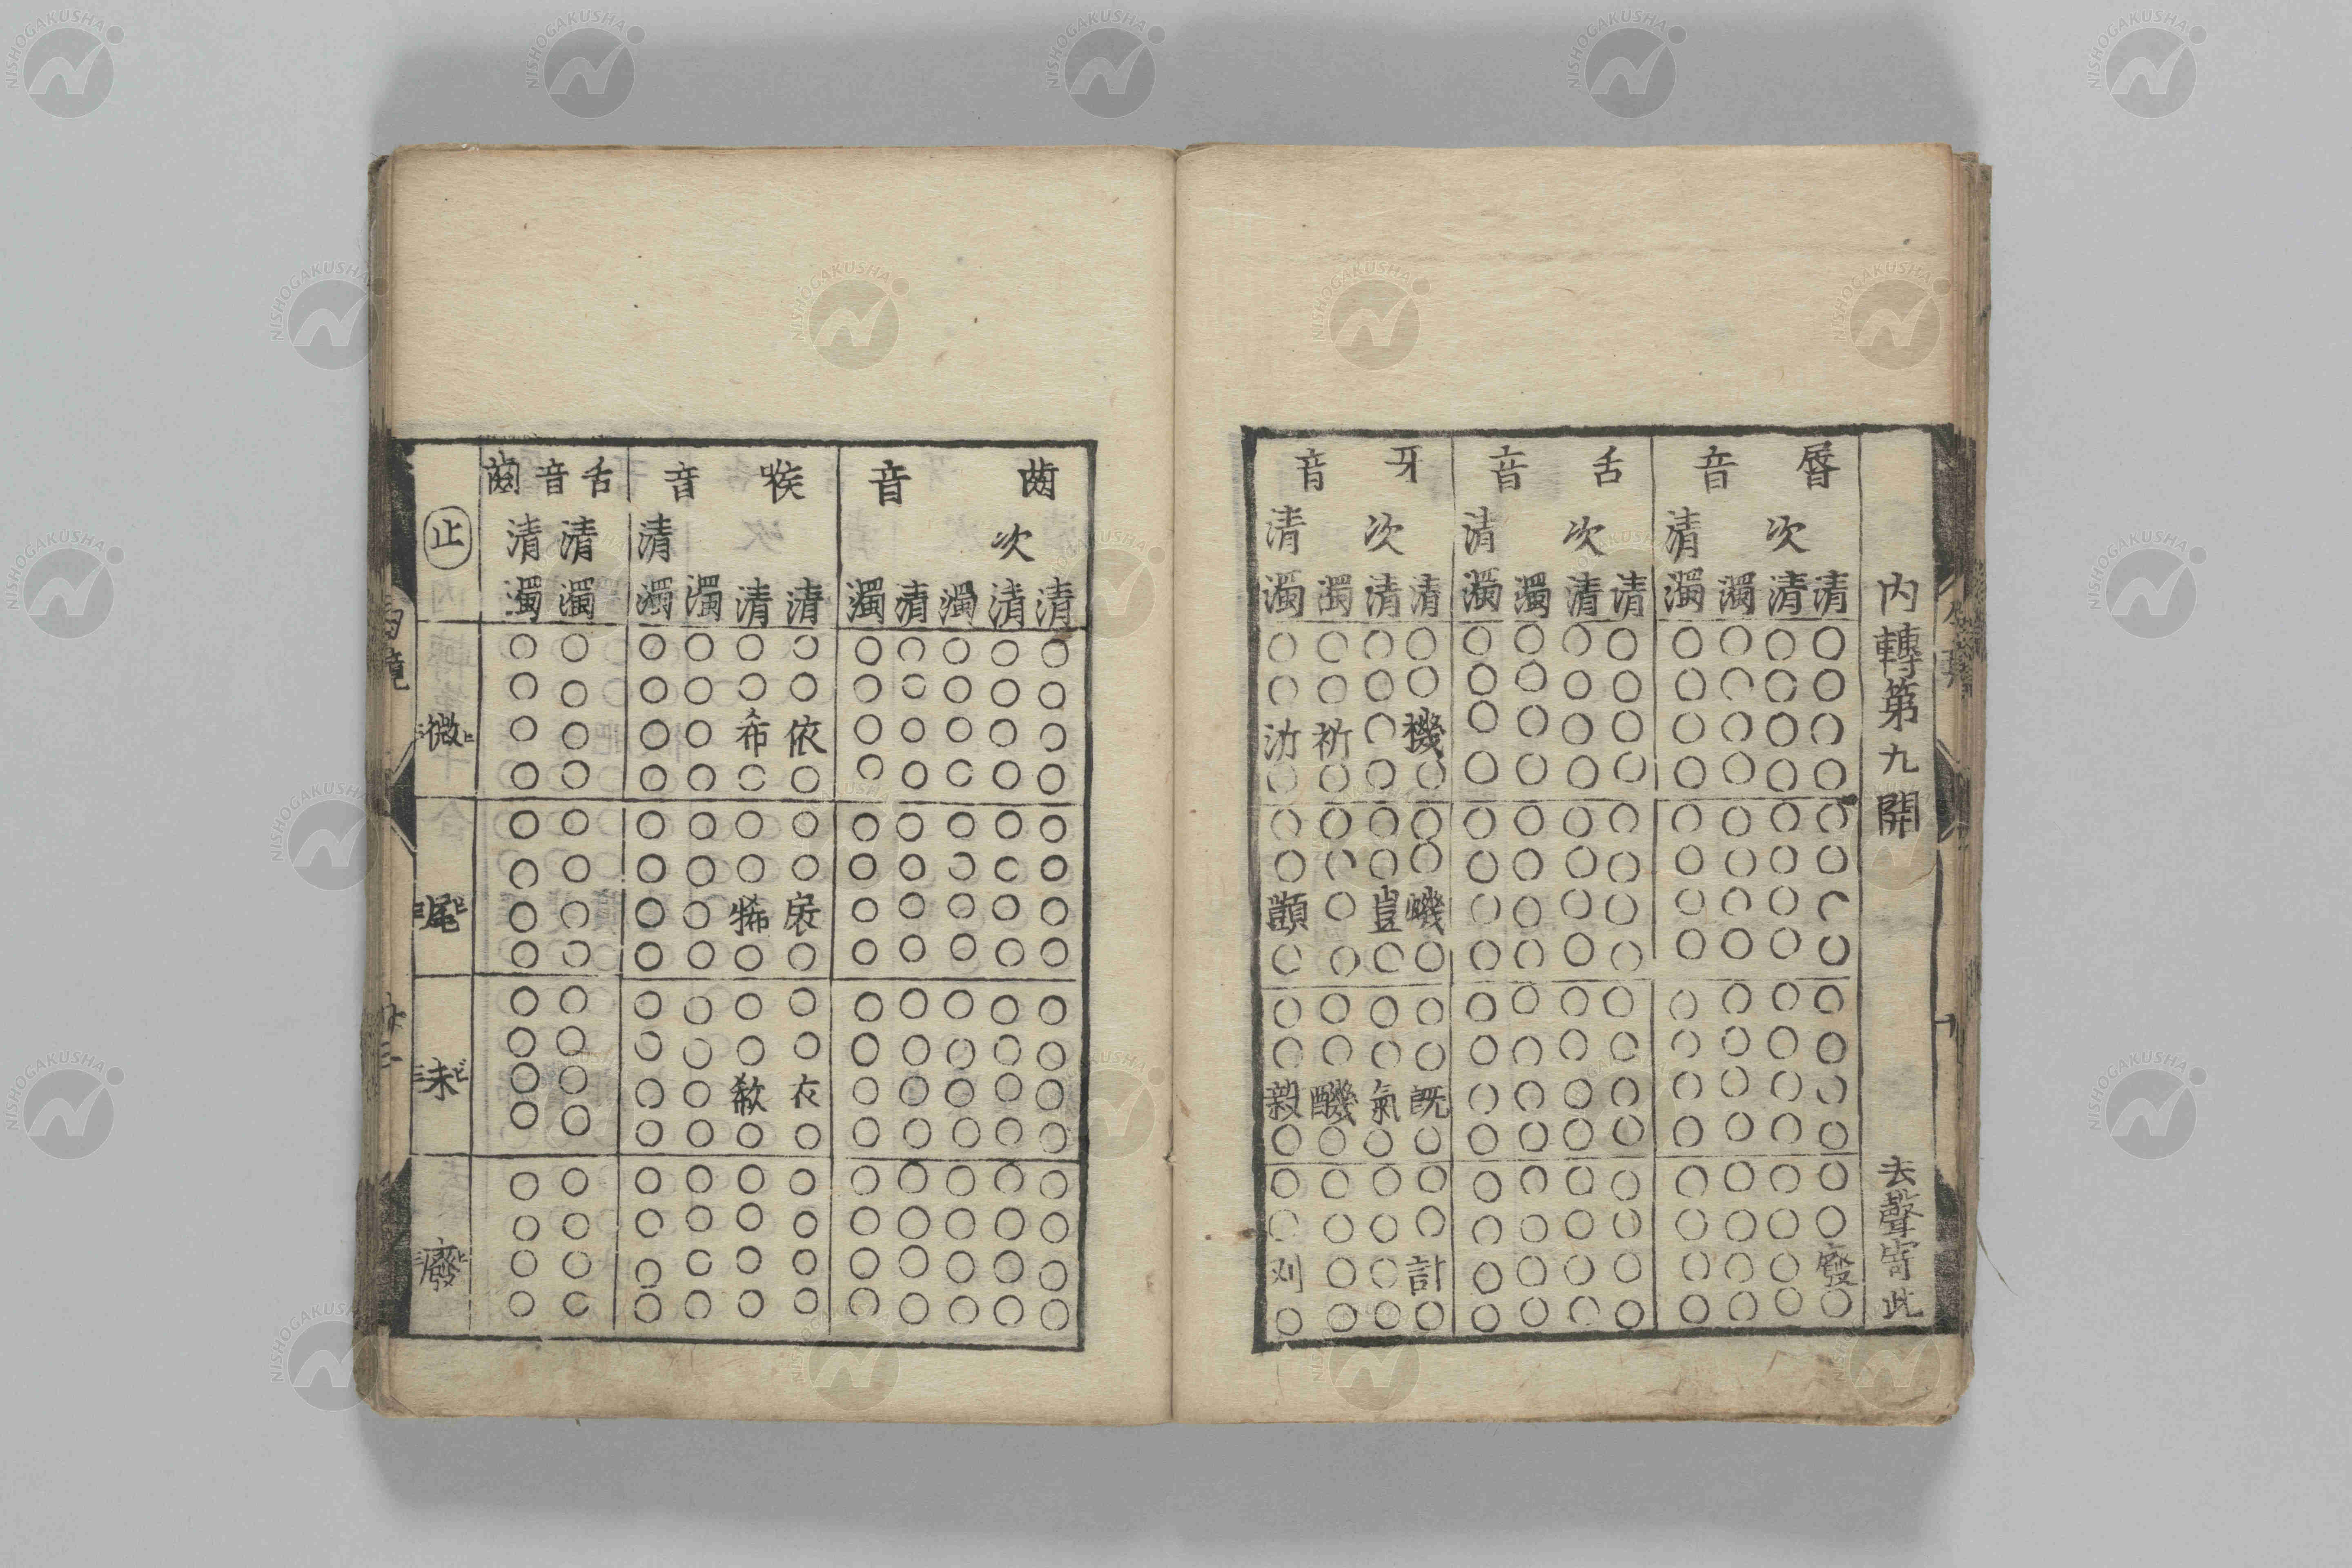 内轉第九開 去聲寄此
脣音 舌音 牙音
次清 次清 次清
清 清 濁 濁 清 清 濁 濁 清 清 濁 濁
○○○○ ○○○○ ○○○○
○○○○ ○○○○ ○○○○
○○○○ ○○○○ 機○祈沂
○○○○ ○○○○ ○○○○
○○○○ ○○○○ ○○○○
○○○○ ○○○○ ○○○○
○○○○ ○○○○ 蟣豈○顗
○○○○ ○○○○ ○○○○
○○○○ ○○○○ ○○○○
○○○○ ○○○○ ○○○○
○○○○ ○○○○ 既氣䤒毅
○○○○ ○○○○ ○○○○
○○○○ ○○○○ ○○○○
○○○○ ○○○○ ○○○○
廢○○○ ○○○○ 訐○○刈
○○○○ ○○○○ ○○○○
齒音 喉音 舌音齒
次 清 清清 止
清清濁清濁 清清濁濁 濁濁
○○○○○ ○○○○ ○○
○○○○○ ○○○○ ○○
○○○○○ 依希○○ ○○ 微
○○○○○ ○○○○ ○○
○○○○○ ○○○○ ○○
○○○○○ ○○○○ ○○
○○○○○ 扆狶○○ ○○ 尾
○○○○○ ○○○○ ○○
○○○○○ ○○○○ ○○
○○○○○ ○○○○ ○○
○○○○○ 衣欷○○ ○○ 未
○○○○○ ○○○○ ○○
○○○○○ ○○○○ ○○
○○○○○ ○○○○ ○○
○○○○○ ○○○○ ○○ 廢
○○○○○ ○○○○ ○○